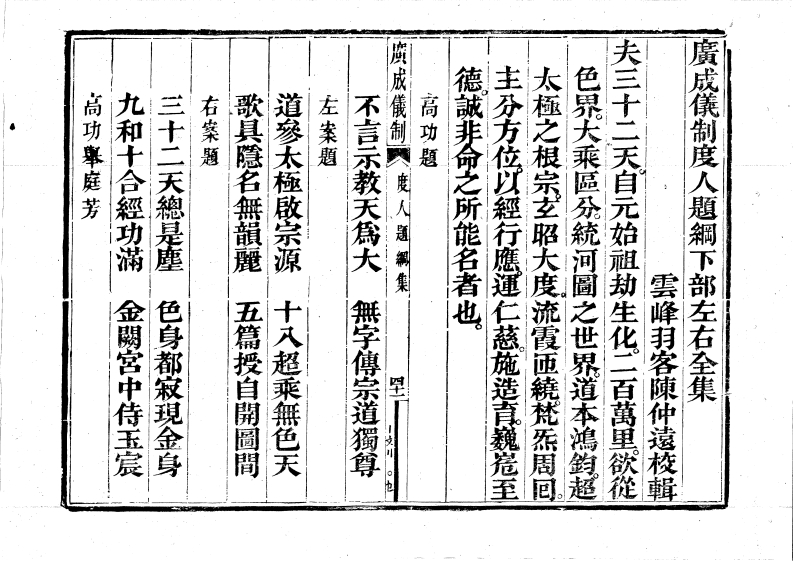 廣成儀制度人題綱下部左右全集
雲峰羽客陳仲遠校輯
夫三十二天。自元始祖劫生化。二百萬里。欲從
色界。大乘區分。統河圖之世界。道本鴻鈞。超
太極之根宗。玄昭大度。流霞匝繞。梵炁周回。
主分方位。以經行應。運仁慈。施造育。巍巍至
德。誠非命之所能名者也。
高功題
不言示教天爲大　無字傳宗道獨尊
廣成儀制
度人題綱集
左案題
道參太極啟宗源　十八超乘無色天
歌具隱名無韻麗　五篇授自開圖間
右案題
三十二天總是塵　色身都寂現金身
九和十合經功滿　金闕宮中侍玉宸
高功舉庭芳